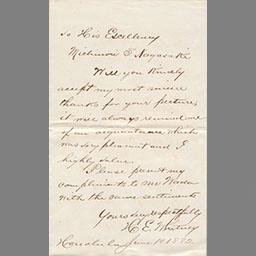 To His Excellency
Michinori S Nagasaki
Will you kindly
accept my most sincere
thanks for your picture,
it will always remind me
of an acquaintance which
was very pleasant and I
highly value.
Please permit my
compliments to Mr Wada
with the same sentiments
Yours very respectfully
H. E. Whitney
Honolulu June 10 1882